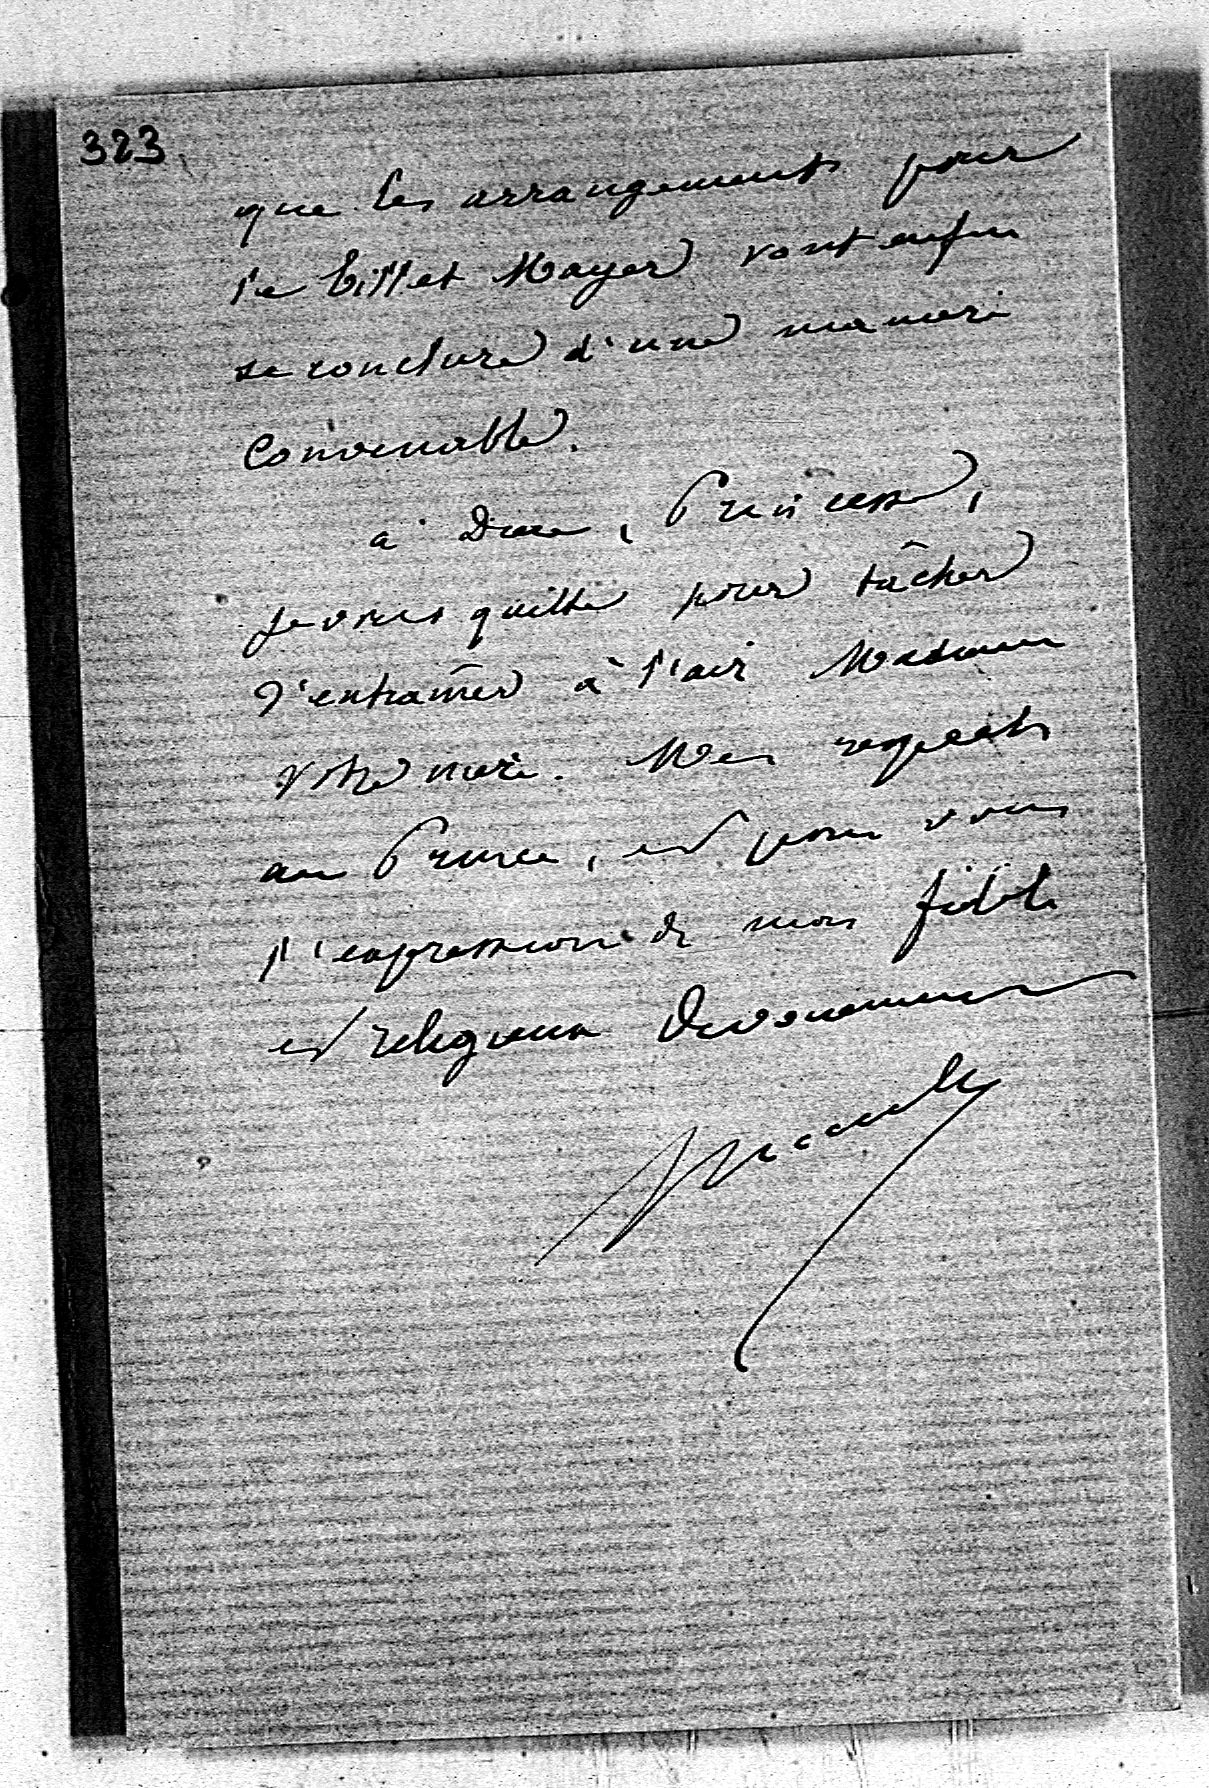 323
que les arrangements pour
le billet Mayer vont enfin
se conclure d'une manière
convenable.
à Dieu, Princesse,
je vous quitte pour tâcher
d'entraîner à l'air Madame
votre mère. Mes respects
au Prince, et pour vous
l'expression de mon fidèle
et religieux dévouement